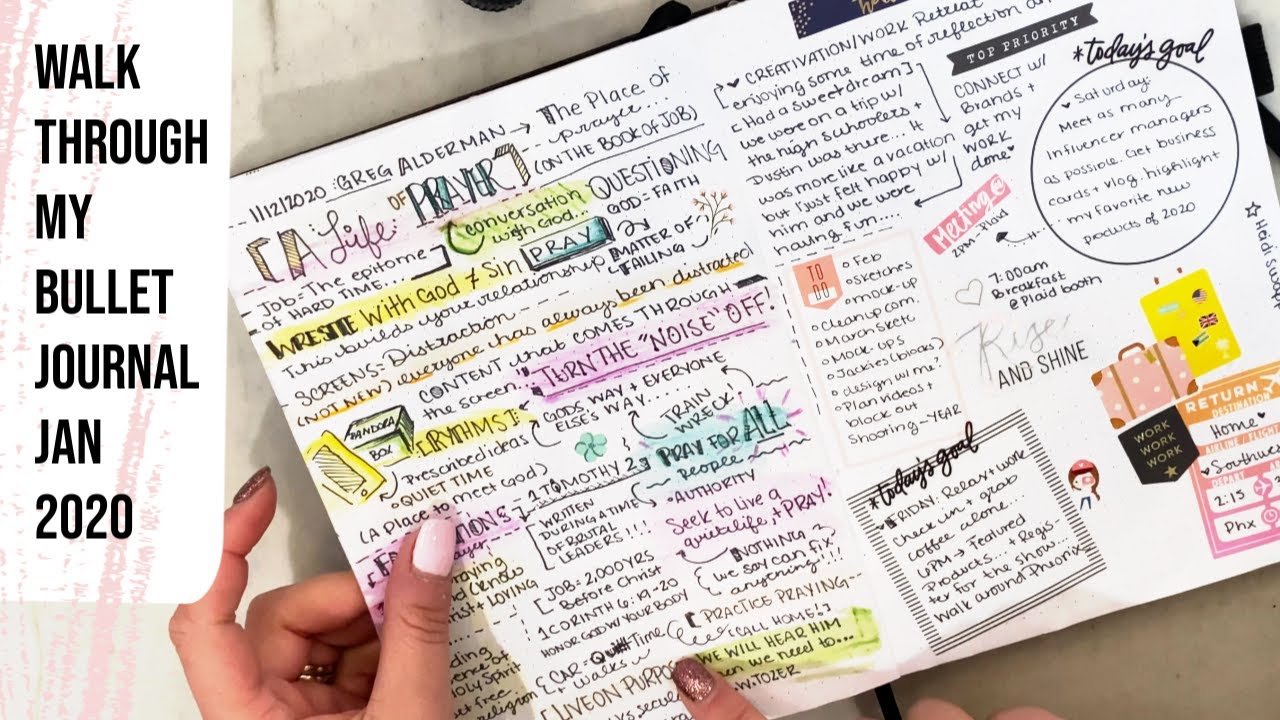 WALK
THROUGH
MY
BULLET
JOURNAL
JAN
2020
11/12/2020 : GREG ALDERMAN → The Place of
prayer...
(ON THE BOOK OF JOB)
[A Life OF PRAYER]
CONVERSATION
with God...
QUESTIONING
GOD = FAITH
PRAY
MATTER OF
FAILING
JOB = The epitome
OF HARD TIME...
WRESTLE With God ≠ Sin
This builds your relationship
SCREENS = Distraction -
(NOT NEW) everyone has always been distracted
CONTENT that comes THROUGH
the screen...
TURN THE "NOISE" OFF.
PANDORA
BOX
RYTHMS
GODS WAY + EVERYONE
ELSE'S WAY....
TRAIN
WRECK!
Prescribed ideas
QUIET TIME
(A Place to meet God)
1 TIMOTHY 2
PRAY FOR ALL
people
AUTHORITY
WRITTEN
DURING A TIME
OF BRUTAL
LEADERS!!!!
Seek to Live a
quiet life, + PRAY!
NOTHING
we say can fix
anything!!!
[JOB = 2,000 YRS
Before Christ
1 CORINTH 6:19-20
HONOR GOD W YOUR BODY
[PRACTICE PRAYING
CALL HOME!]
CAR = Quiet Time
walks
WE WILL HEAR HIM
when we need to...
A.W. TOZER
[LIVE ON PURPOSE
♥ CREATIVATION/WORK Retreat
enjoying some time of reflection
[Had a sweet dream]
we were on a trip w/
the high schoolers
Dustin was there... It
was more like a vacation
but I just felt happy w/
him and we were
having fun....
TOP PRIORITY
CONNECT w/
Brands +
get my
work
done♥
*today's goal
♥ Saturday:
Meet as many
influencer managers
as possible. Get business
cards + vlog. highlight
my favorite new
products of 2020
Meeting
2PM - Plaid
♡ 7:00am
Breakfast
@ Plaid booth
TO
DO
o Feb
o sketches
o mock-up
o Cleanup cam
o March Sketch
o Mock ups
o Jackies (blocks)
o design w/ me?
o Plan video +
block out
Shooting - YEAR
Rise
AND SHINE
RETURN
DESTINATION
Home ♥
AIRLINE / FLIGHT
♥ Southwest
DEPART
2:15
Phx
WORK
WORK
WORK
*today's goal
♥ FRIDAY: Relax + work
check in + grab
coffee alone....
4PM → Featured
Products... + Regis-
ter for the show...
walk around Phoenix